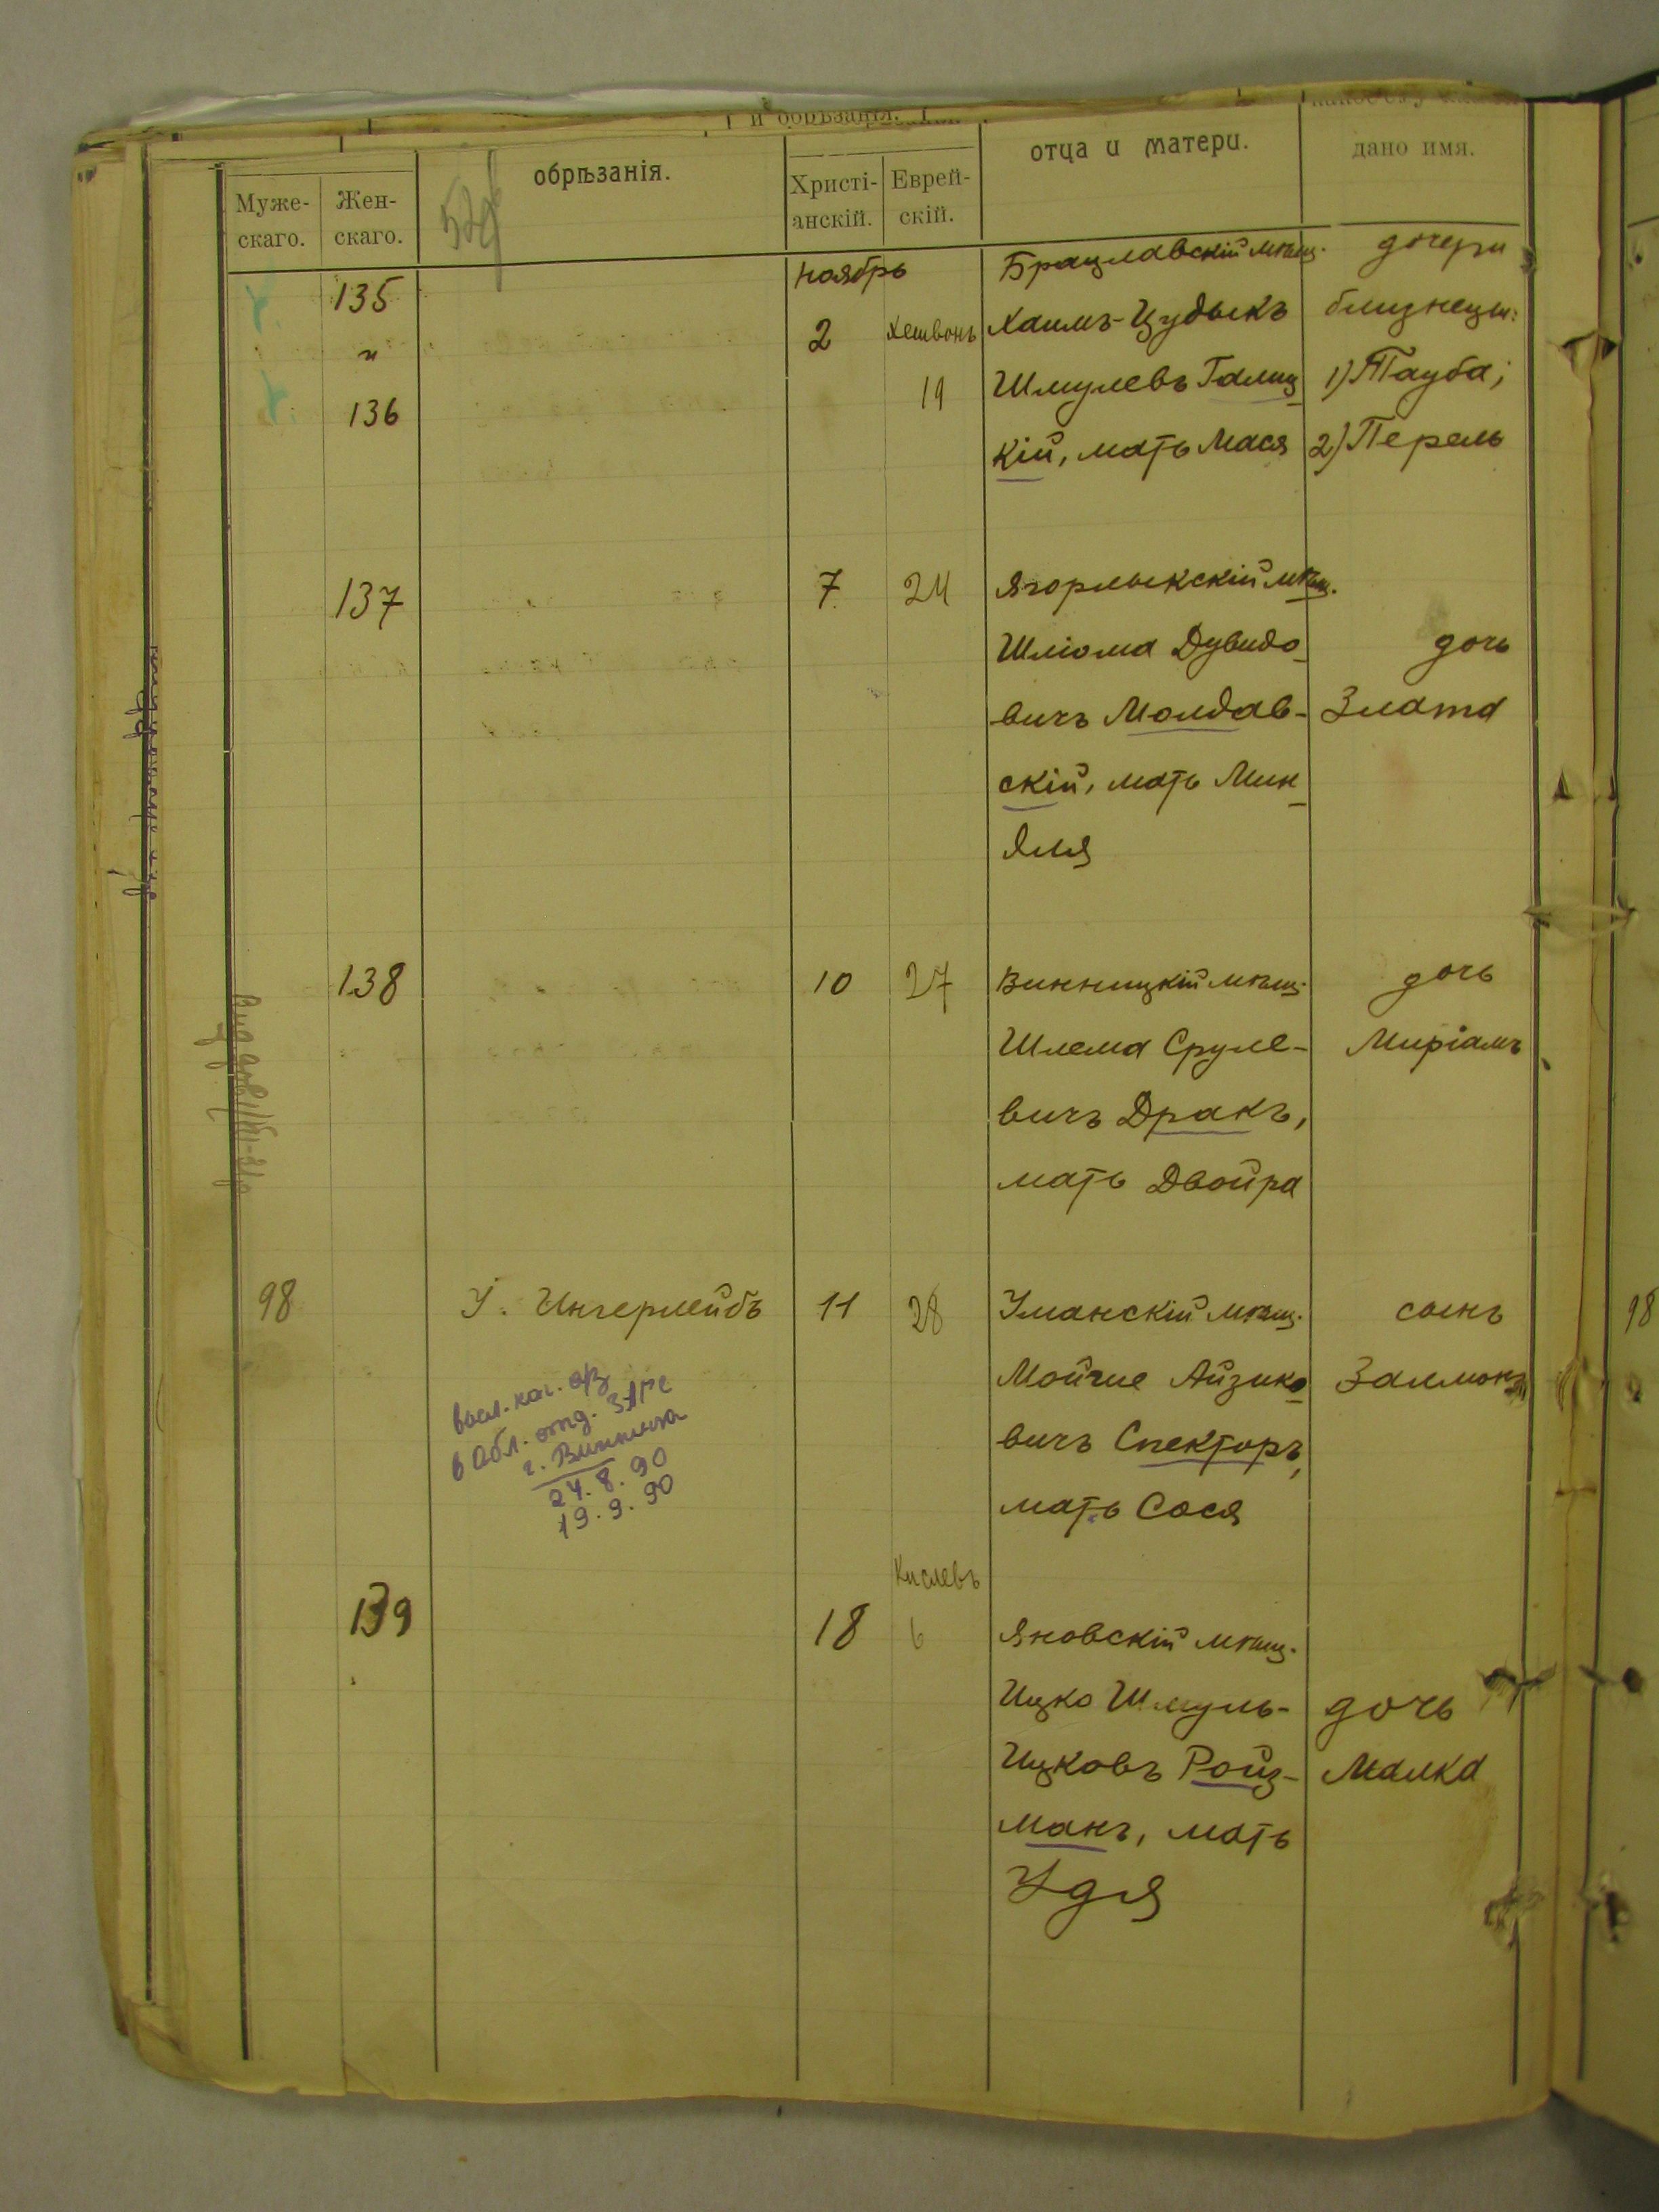 и обрѣзанія.
Муже-
скаго.
Жен-
скаго.
обрѣзанія.
Христі-
анскій.
Еврей-
скій.
отца и матери.
дано имя.
135
и
136
Ноябрь
2
Хешвонъ
19
Брацлавскій мѣщ.
Хаимъ-Цудыкъ
Шмулевъ Галиц
кій, мать Мася
дочери
близнецы:
1) Тауба;
2) Перель
137
7
24
Ягорлыкскій мѣщ.
Шліома Дувидо
вичъ Молдав-
скій, мать Мин
для
дочь
Злата
138
10
27
Винницкій мѣщ.
Шлема Сруле-
вичъ Дракъ,
мать Двойра
дочь
Миріамъ
98
У. Ингерлейбъ
11
28
Уманскій мѣщ.
Мойше Айзико
вичъ Спекторъ,
мать Сося
сынъ
Залмонъ
в Обл. отд. ЗАГС
г. Винница
24.8.90
19.9.90
139
18
Кислевъ
6
Яновскій мѣщ.
Ицко Шмуль-
Ицковъ Ройз-
манъ, мать
Удя
дочь
Малка
98